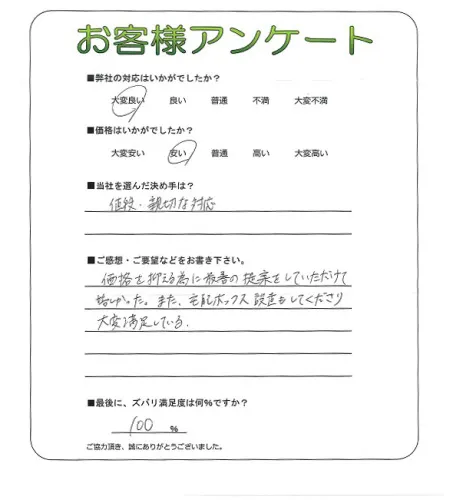 お客様アンケート
■弊社の対応はいかがでしたか?
大変良い 良い 普通 不満 大変不満
■価格はいかがでしたか?
大変安い 安い 普通 高い 大変高い
■当社を選んだ決め手は?
値段・親切な対応
■ご感想・ご要望などをお書き下さい。
価格を抑える為に最善の提案をしていただけて
嬉しかった。また、宅配ボックス設置もしてくださり
大変満足している.
■最後に、ズバリ満足度は何%ですか?
100 %
ご協力頂き、誠にありがとうございました。